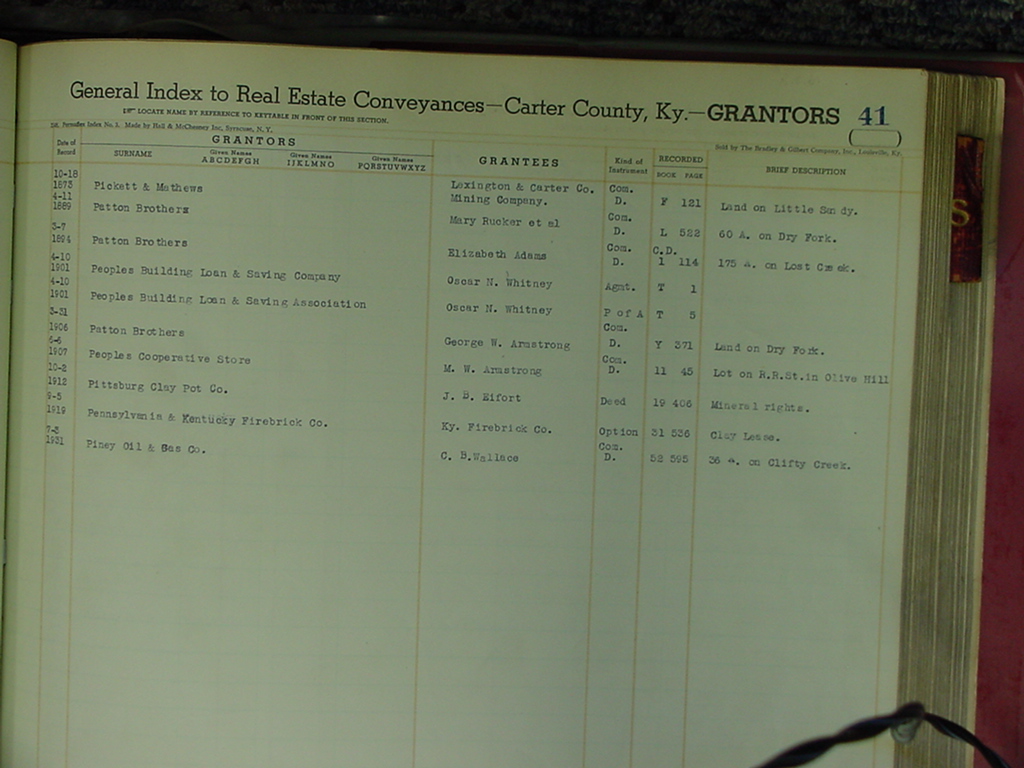 General Index to Real Estate Conveyances—Carter County, Ky.—GRANTORS 41
LOCATE NAME BY REFERENCE TO KEYTABLE IN FRONT OF THIS SECTION.
Index No. 1. Made by Hall & McChesney Inc, Syracuse, N. Y.
Sold by The Bradley & Gilbert Company, Inc., Louisville, Ky.
Date of Record GRANTORS GRANTEES Kind of Instrument RECORDED BRIEF DESCRIPTION
SURNAME Given Names ABCDEFGH Given Names IJKLMNO Given Names PQRSTUVWXYZ BOOK PAGE
10-18 Lexington & Carter Co. Com.
1873 Pickett & Mathews Mining Company. D. F 121 Land on Little Sandy.
4-11 Com.
1889 Patton Brothers Mary Rucker et al D. L 522 60 A. on Dry Fork.
3-7 Com. C.D.
1894 Patton Brothers Elizabeth Adams D. 1 114 175 A. on Lost Creek.
4-10
1901 Peoples Building Loan & Saving Company Oscar N. Whitney Agmt. T 1
4-10
1901 Peoples Building Loan & Saving Association Oscar N. Whitney P of A T 5
3-31 Com.
1906 Patton Brothers George W. Armstrong D. Y 371 Land on Dry Fork.
6-6 Com.
1907 Peoples Cooperative Store M. W. Armstrong D. 11 45 Lot on R.R.St.in Olive Hill
10-2
1912 Pittsburg Clay Pot Co. J. B. Eifort Deed 19 406 Mineral rights.
9-5
1919 Pennsylvania & Kentucky Firebrick Co. Ky. Firebrick Co. Option 31 536 Clay Lease.
7-3 Com.
1931 Piney Oil & Gas Co. C. B.Wallace D. 52 595 36 A. on Clifty Creek.
S